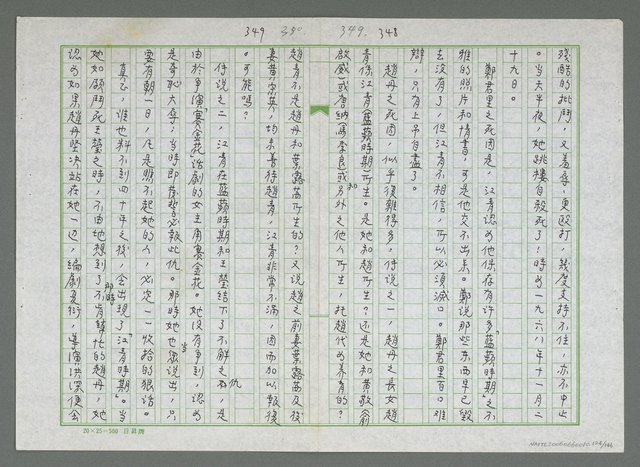 349 350 349. 348
殘酷的批鬥,又羞辱,更毆打,幾度支持不住,亦不中止
。當天半夜,她跳樓自殺死了;時為一九六八年十一月二
十九日。
鄭君里之死因是,江青認為他保存有許多「藍蘋時期」之不
雅的照片和情書,可是他交不出來。鄭說那些東西早已毀
去沒有了,但江青不相信,所以必須滅口。鄭君里百口難
辯,只有上吊自盡了。
趙丹之死因,似乎複雜得多。傳說之一,趙丹之長女趙
青係江青藍蘋時期所生。是她和趙丹?還是她和黃敬(俞
啟威)或唐納(馬季良)或和另外之他人所生,托趙代為養育的?
趙青不是趙丹和葉露茜所生的?又說趙之前妻葉露茜及後
妻黃宗英,均未善待趙青,江青非常不滿,因而加以報復
。可能嗎?
傳說之二,江青在藍蘋時期和王瑩結下了不解之仇,是
由於爭演「賽金花」話劇的女主角賽金花。她沒有爭到,認為
是奇恥大辱;當時即發誓必報此仇。那時她也當眾說出,只
要有朝一日,凡是瞧不起她的人,必定一一收拾的狠話。
真正,誰也料不到四十年之後,會出現了「江青時期」。當
她如願鬥死王瑩之時,不由地想到了那時不肯幫忙的趙丹,她
認為如果趙丹堅決站在她一邊,編劇夏衍,導演洪深便會
20×25=500 日昇牌